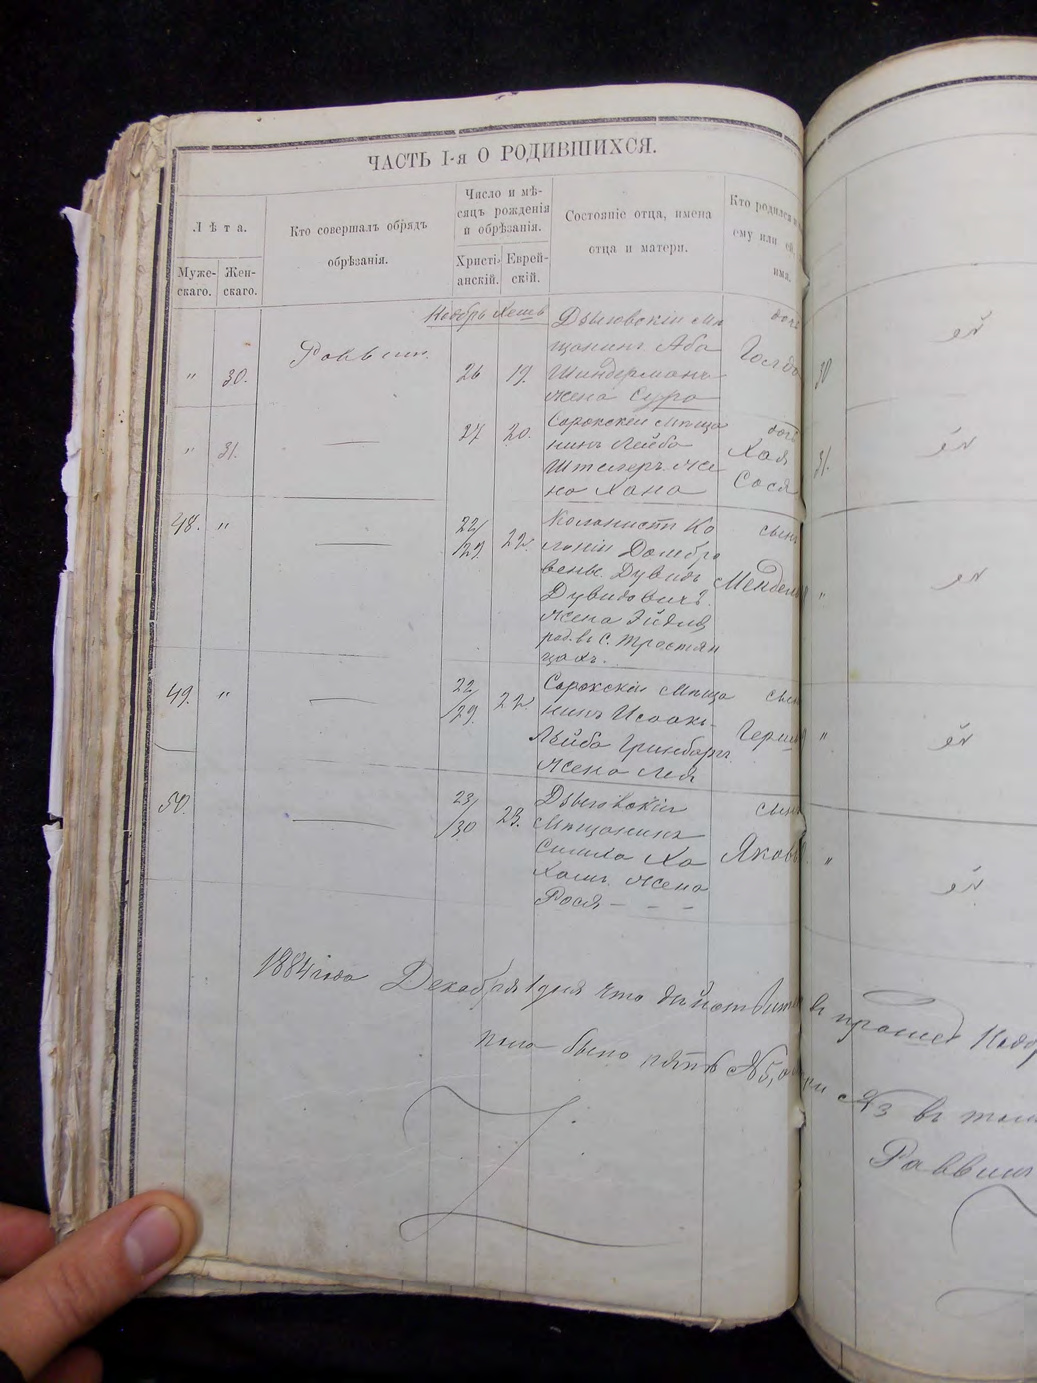 ЧАСТЬ I-я О РОДИВШИХСЯ.
Лѣта.
Муже-
скаго.
Жен-
скаго.
Кто совершалъ обрядъ
обрѣзанія.
Число и мѣ-
сяцъ рожденія
и обрѣзанія.
Христі-
анскій.
Еврей-
скій.
Состояніе отца, имена
отца и матери.
Кто родился и
ему или ей
имя.
Ноябрь Хешв
" 30.
Раввин
26 19.
Мѣ
щанинъ Аба
Шиндерманъ
жена Сура
Голда
30
" 31.
27 20.
Сорокскій Мѣща
нинъ Лейба
жe
на Хана
Хая
Сося
31.
48. "
22/29 22.
Колонистъ Ко
лоніи Домбро
вены Дувидъ
Дувидовичъ
жена Эйдля
род. въ с. Тростян
цахъ.
сынъ
Мендель
"
49. "
22/29 22.
Сорокскій Мѣща
нинъ Исаакъ
Лейба Гринбаргъ
жена Лея
сын
Герш
"
50.
23/30 23.
Мѣщанинъ
Симха Ха
хамъ жена
Рося - - -
сынъ
Яковъ
"
1884 года Декабря 1 дня что дѣйствит въ прошед Нояб
было пять № 5, въ том
Раввин